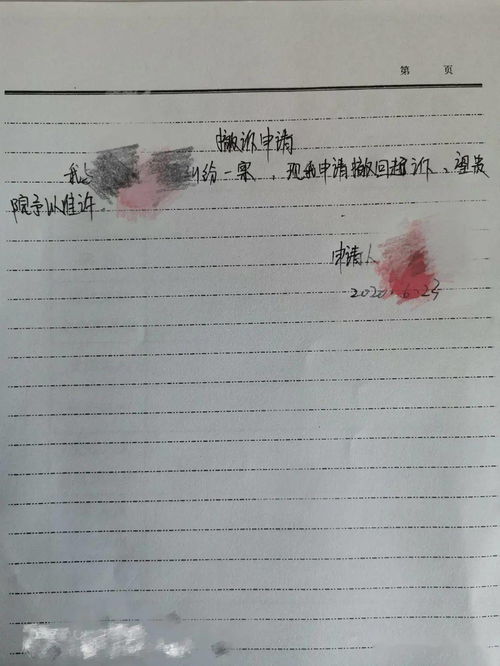 第 页
撤诉申请
我 纠纷一案，现我申请撤回起诉、望贵
院予以准许。
申请人
2020.6.23